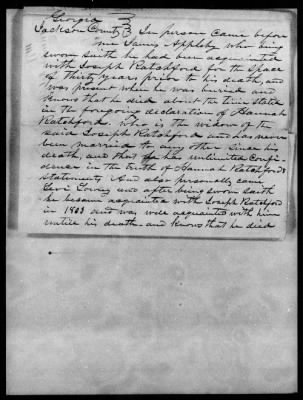 Georgia }
Jackson County } In person Came before
me James Appleby who being
sworn saith he had been acquainted
with Joseph Ratchford for the Space
of thirty years prior to his death, and
was present when he was buried and
knows that he died about the time stated
in the foregoing declaration of Hannah
Ratchford. Who is the widow of the
said Joseph Ratchford and has never
been married to any other since his
death, and that he has unlimited Confi-
dence in the truth of Hannah Ratchford's
statement, And also personally came
Levi Lowry and after being sworn saith
he became acquainted with Joseph Ratchford
in 1803 and was well acquainted with him
untill his death, and knows that he died